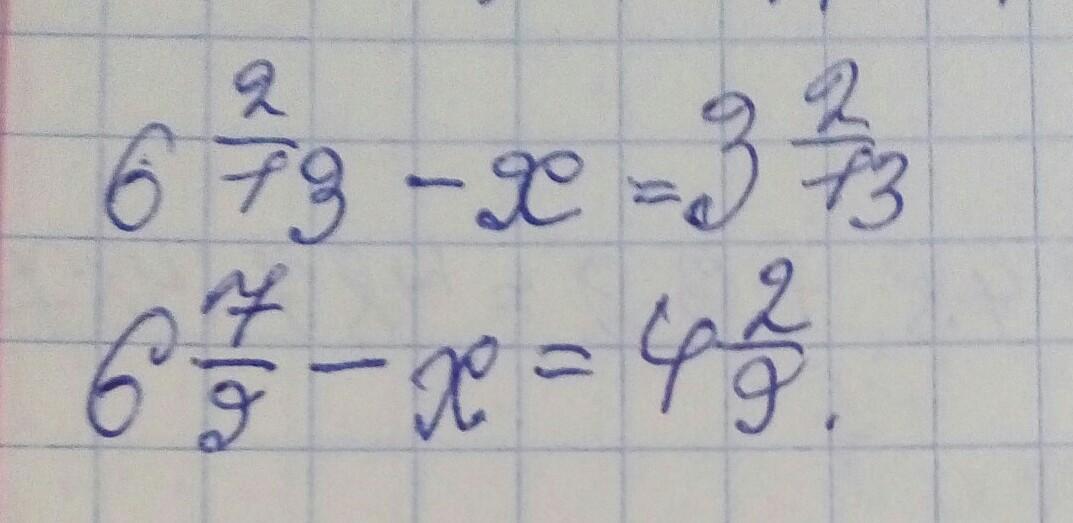 6 2/13 - x = 3 2/13
6 7/9 - x = 4 2/9.